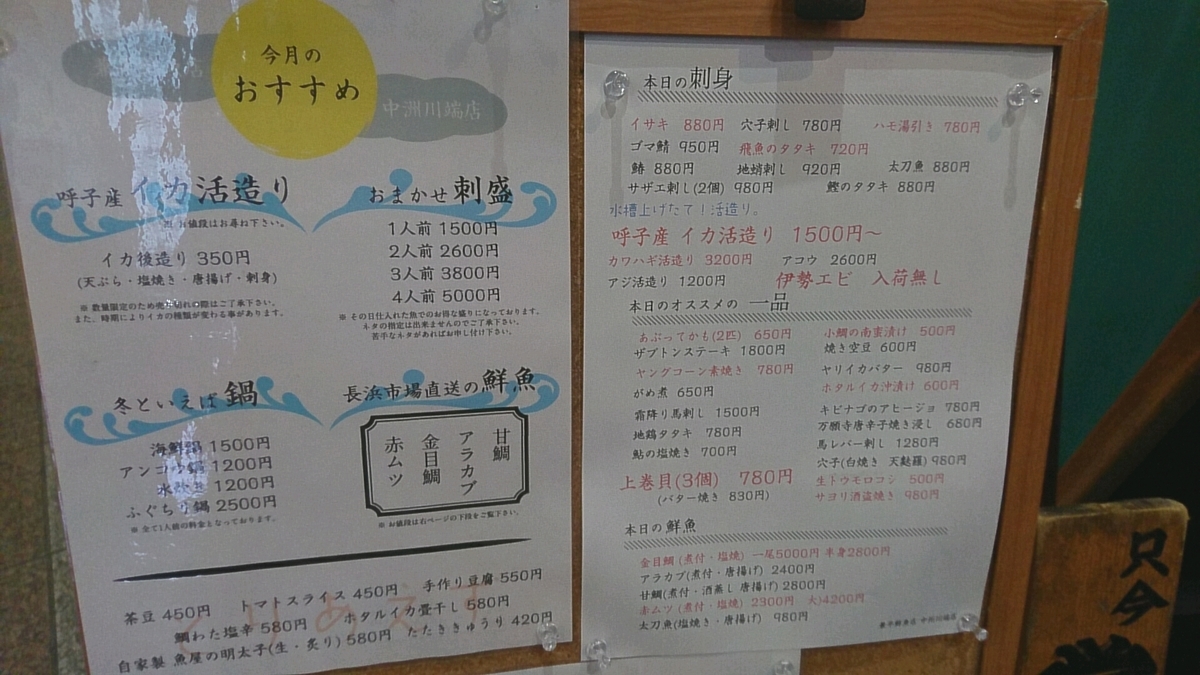 今月の
おすすめ
中洲川端店
呼子産 イカ活造り
※ お値段はお尋ね下さい。
イカ後造り 350円
(天ぷら・塩焼き・唐揚げ・刺身)
※ 数量限定のため売り切れの際はご了承下さい。
また、時期によりイカの種類が変わる事があります。
おまかせ 刺盛
1人前 1500円
2人前 2600円
3人前 3800円
4人前 5000円
※ その日仕入れた魚でのお得な盛りになっております。
ネタの指定は出来ませんのでご了承下さい。
苦手なネタがあればお申し付け下さい。
冬といえば 鍋
海鮮鍋 1500円
アンコウ鍋 1200円
水炊き 1200円
ふぐちり鍋 2500円
※ 全て1人前の料金となっております。
長浜市場直送の鮮魚
甘鯛
アラカブ
金目鯛
赤ムツ
※ お値段は右ページの下段をご覧下さい。
茶豆 450円 トマトスライス 450円 手作り豆腐 550円
鯛わた塩辛 580円 ホタルイカ畳干し 580円
自家製 魚屋の明太子(生・炙り) 580円 たたききゅうり 420円
本日の刺身
イサキ 880円 穴子刺し 780円 ハモ湯引き 780円
ゴマ鯖 950円 飛魚のタタキ 720円
鰆 880円 地蛸刺し 920円 太刀魚 880円
サザエ刺し(2個) 980円 鰹のタタキ 880円
水槽上げたて!活造り。
呼子産 イカ活造り 1500円～
カワハギ活造り 3200円 アコウ 2600円
アジ活造り 1200円 伊勢エビ 入荷無し
本日のオススメの 一品
あぶってかも(2匹) 650円 小鯛の南蛮漬け 500円
ザブトンステーキ 1800円 焼き空豆 600円
ヤングコーン素焼き 780円 ヤリイカバター 980円
がめ煮 650円 ホタルイカ沖漬け 600円
霜降り馬刺し 1500円 キビナゴのアヒージョ 780円
地鶏タタキ 780円 万願寺唐辛子焼き浸し 680円
鮎の塩焼き 700円 馬レバー刺し 1280円
上巻貝(3個) 780円 穴子(白焼き 天麩羅) 980円
(バター焼き 830円) 生トウモロコシ 500円
サヨリ酒盗焼き 980円
本日の鮮魚
金目鯛 (煮付・塩焼) 一尾5000円 半身2800円
アラカブ(煮付・唐揚げ) 2400円
甘鯛(煮付・酒蒸し 唐揚げ) 2800円
赤ムツ (煮付・塩焼) 2300円 大)4200円
太刀魚(塩焼き・唐揚げ) 980円
中洲川端店
只今